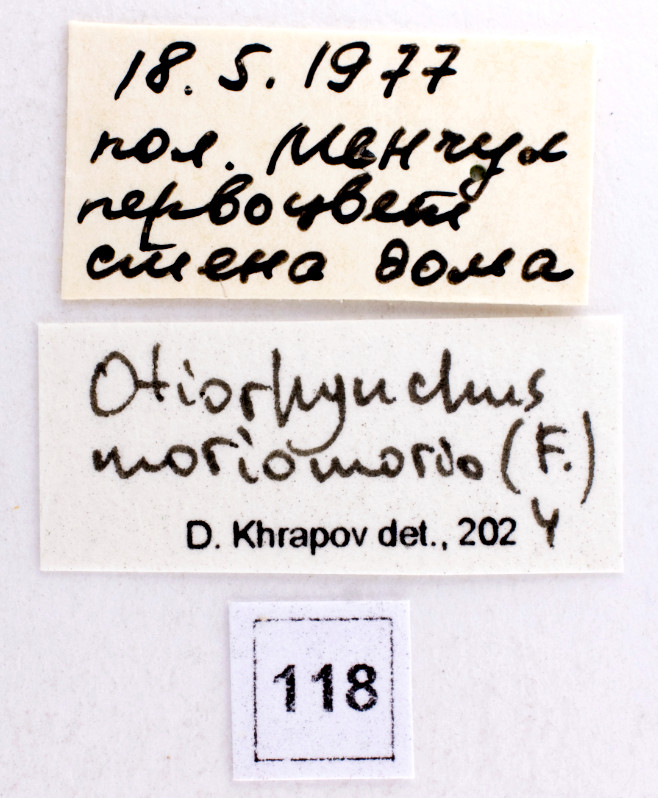 18.5.1977
пол. Менчул
первоцвет
стена дома
Otiorhynchus
morio morio (F.)
D. Khrapov det., 2024
118